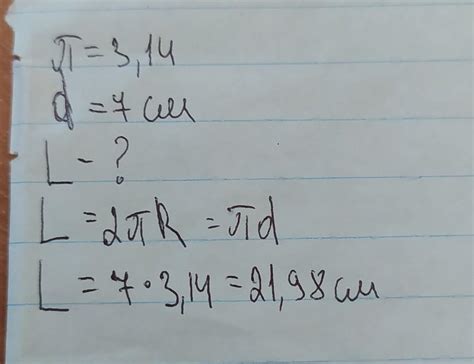 π = 3,14
d = 7 см
L - ?
L = 2πR = πd
L = 7 · 3,14 = 21,98 см